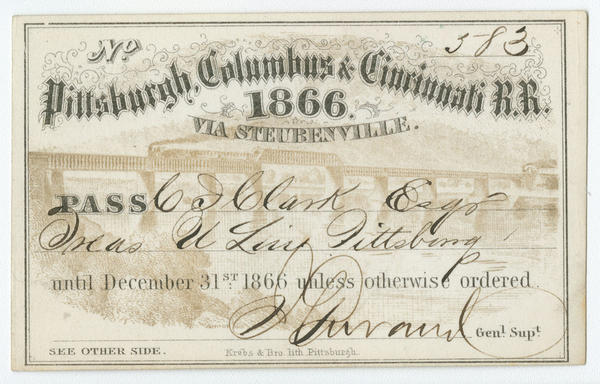 No. 583
Pittsburgh, Columbus & Cincinnati R.R.
1866.
VIA STEUBENVILLE.
PASS C J Clark Esqr
Treas U Line Pittsburg
until December 31ST. 1866 unless otherwise ordered.
J Durand Genl Supt
SEE OTHER SIDE. Krebs & Bro. lith Pittsburgh.